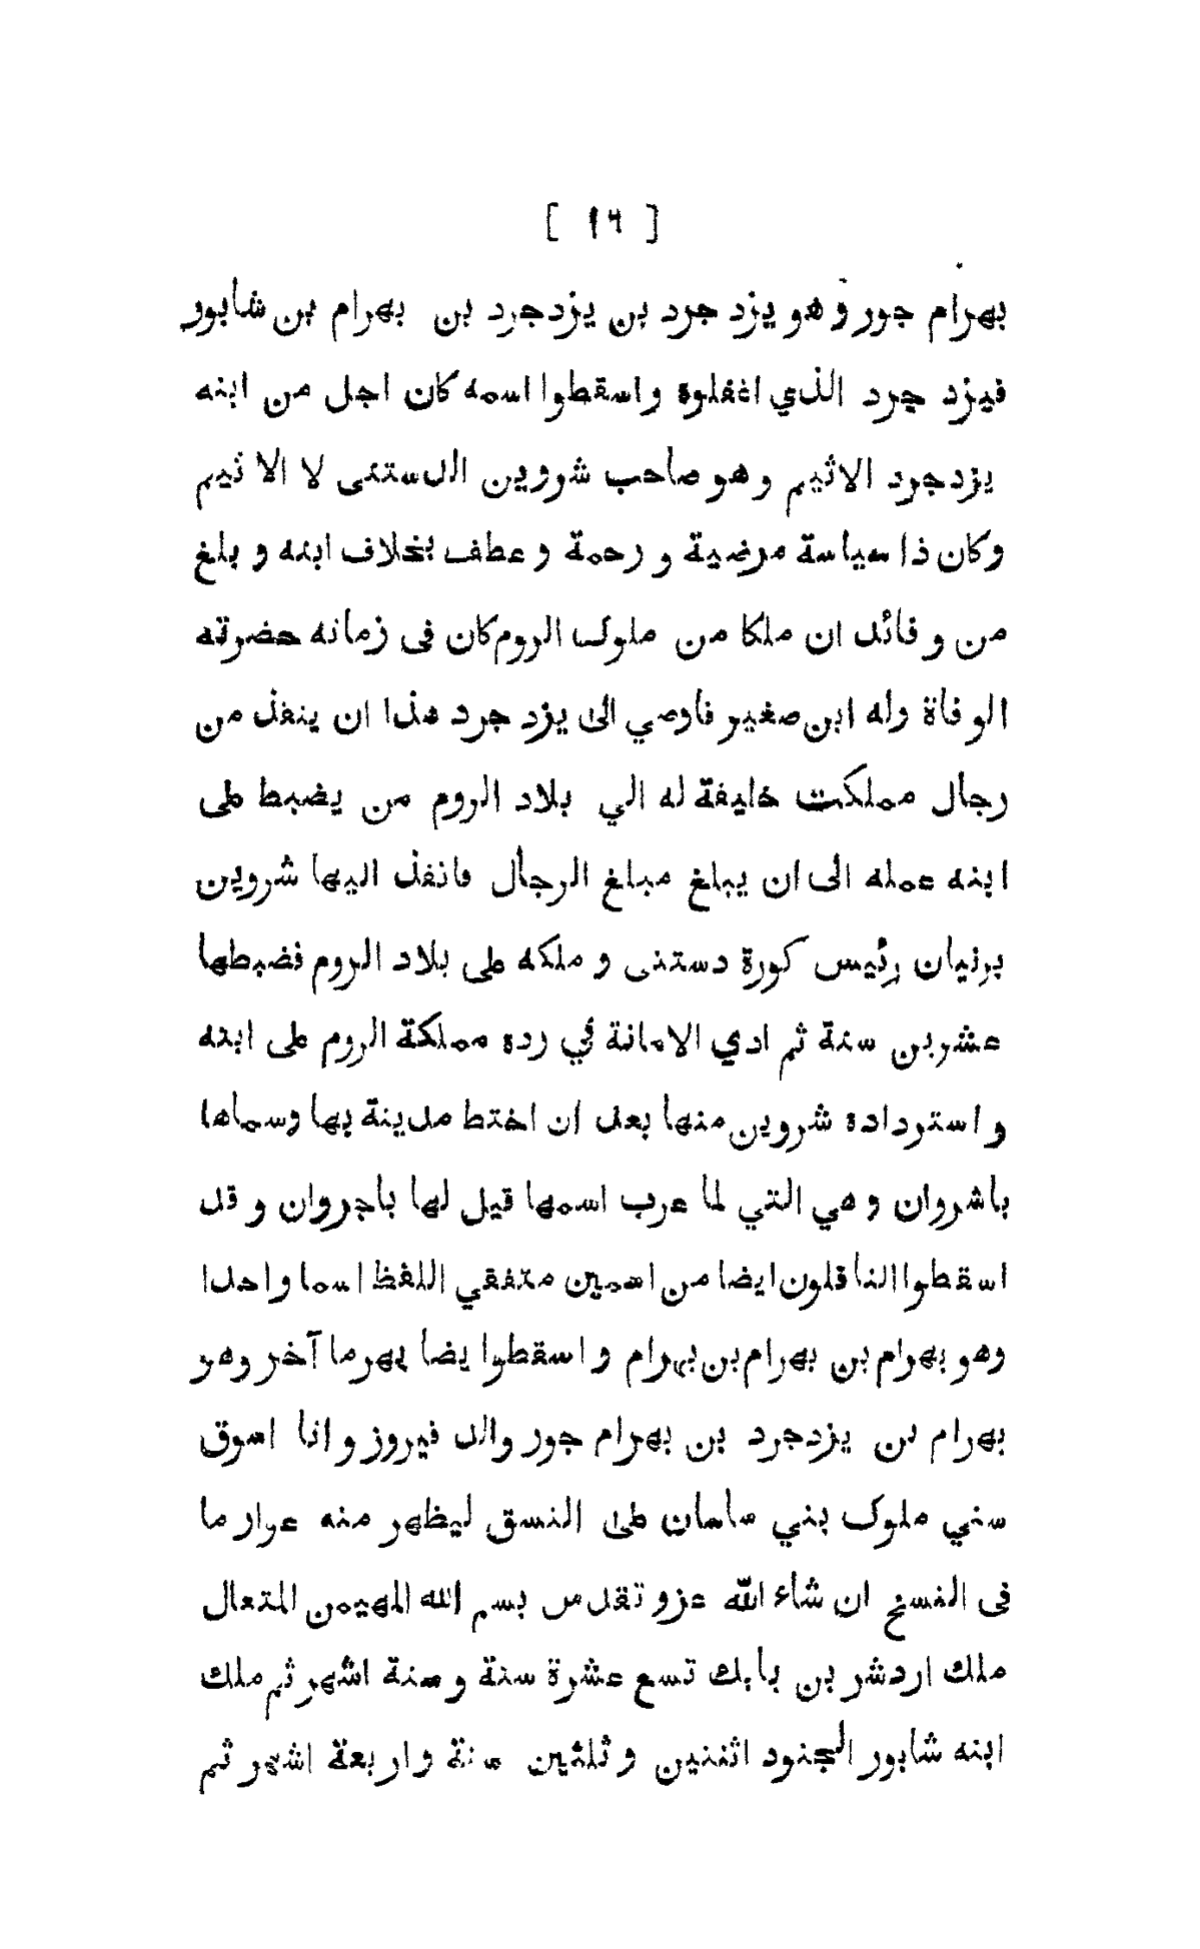 [ ١٦ ]
بهرام جور و هو يزد جرد بن يزدجرد بن بهرام بن شابور
فيزد جرد الذي اغفلوة واسقطوا اسمه كان اجل من ابنه
يزدجرد الاثيم وهو صاحب شروين الدستنى لا الاثيم
وكان ذا سياسة مرضية و رحمة و عطف بخلاف ابنه و بلغ
من و فائد ان ملكا من ملوك الروم كان فى زمانه حضرته
الوفاة وله ابن صغير فاوصي الى يزد جرد هذا ان ينفذ من
رجال مملكت خليفة له الي بلاد الروم من يضبط على
ابنه عمله الى ان يبلغ مبلغ الرجال فانفذ اليها شروين
برنيان رئيس كورة دستنى و ملكه على بلاد الروم فضبطها
عشربن سنة ثم ادي الامانة في رده مملكة الروم على ابنه
و استرداده شروين منها بعد ان اختط مدينة بها وسماها
باشروان و هي التي لما عرب اسمها قيل لها باجروان و قد
اسقطوا الناقلون ايضا من اسمين متفقي اللفظ اسما واحدا
وهو بهرام بن بهرام بن بهرام و اسقطوا يضا بهرما آخر وهو
بهرام بن يزدجرد بن بهرام جور والد فيروز و انا اسوق
سني ملوك بني ساسان على النسق ليظهر منه عوار ما
فى النسخ ان شاء الله عزو تقدس بسم الله المهيمن المتعال
ملك اردشر بن بابك تسع عشرة سنة و ستة اشهر ثم ملك
ابنه شابور الجنود اثنين و ثلثين سنة واربعة اشهر ثم